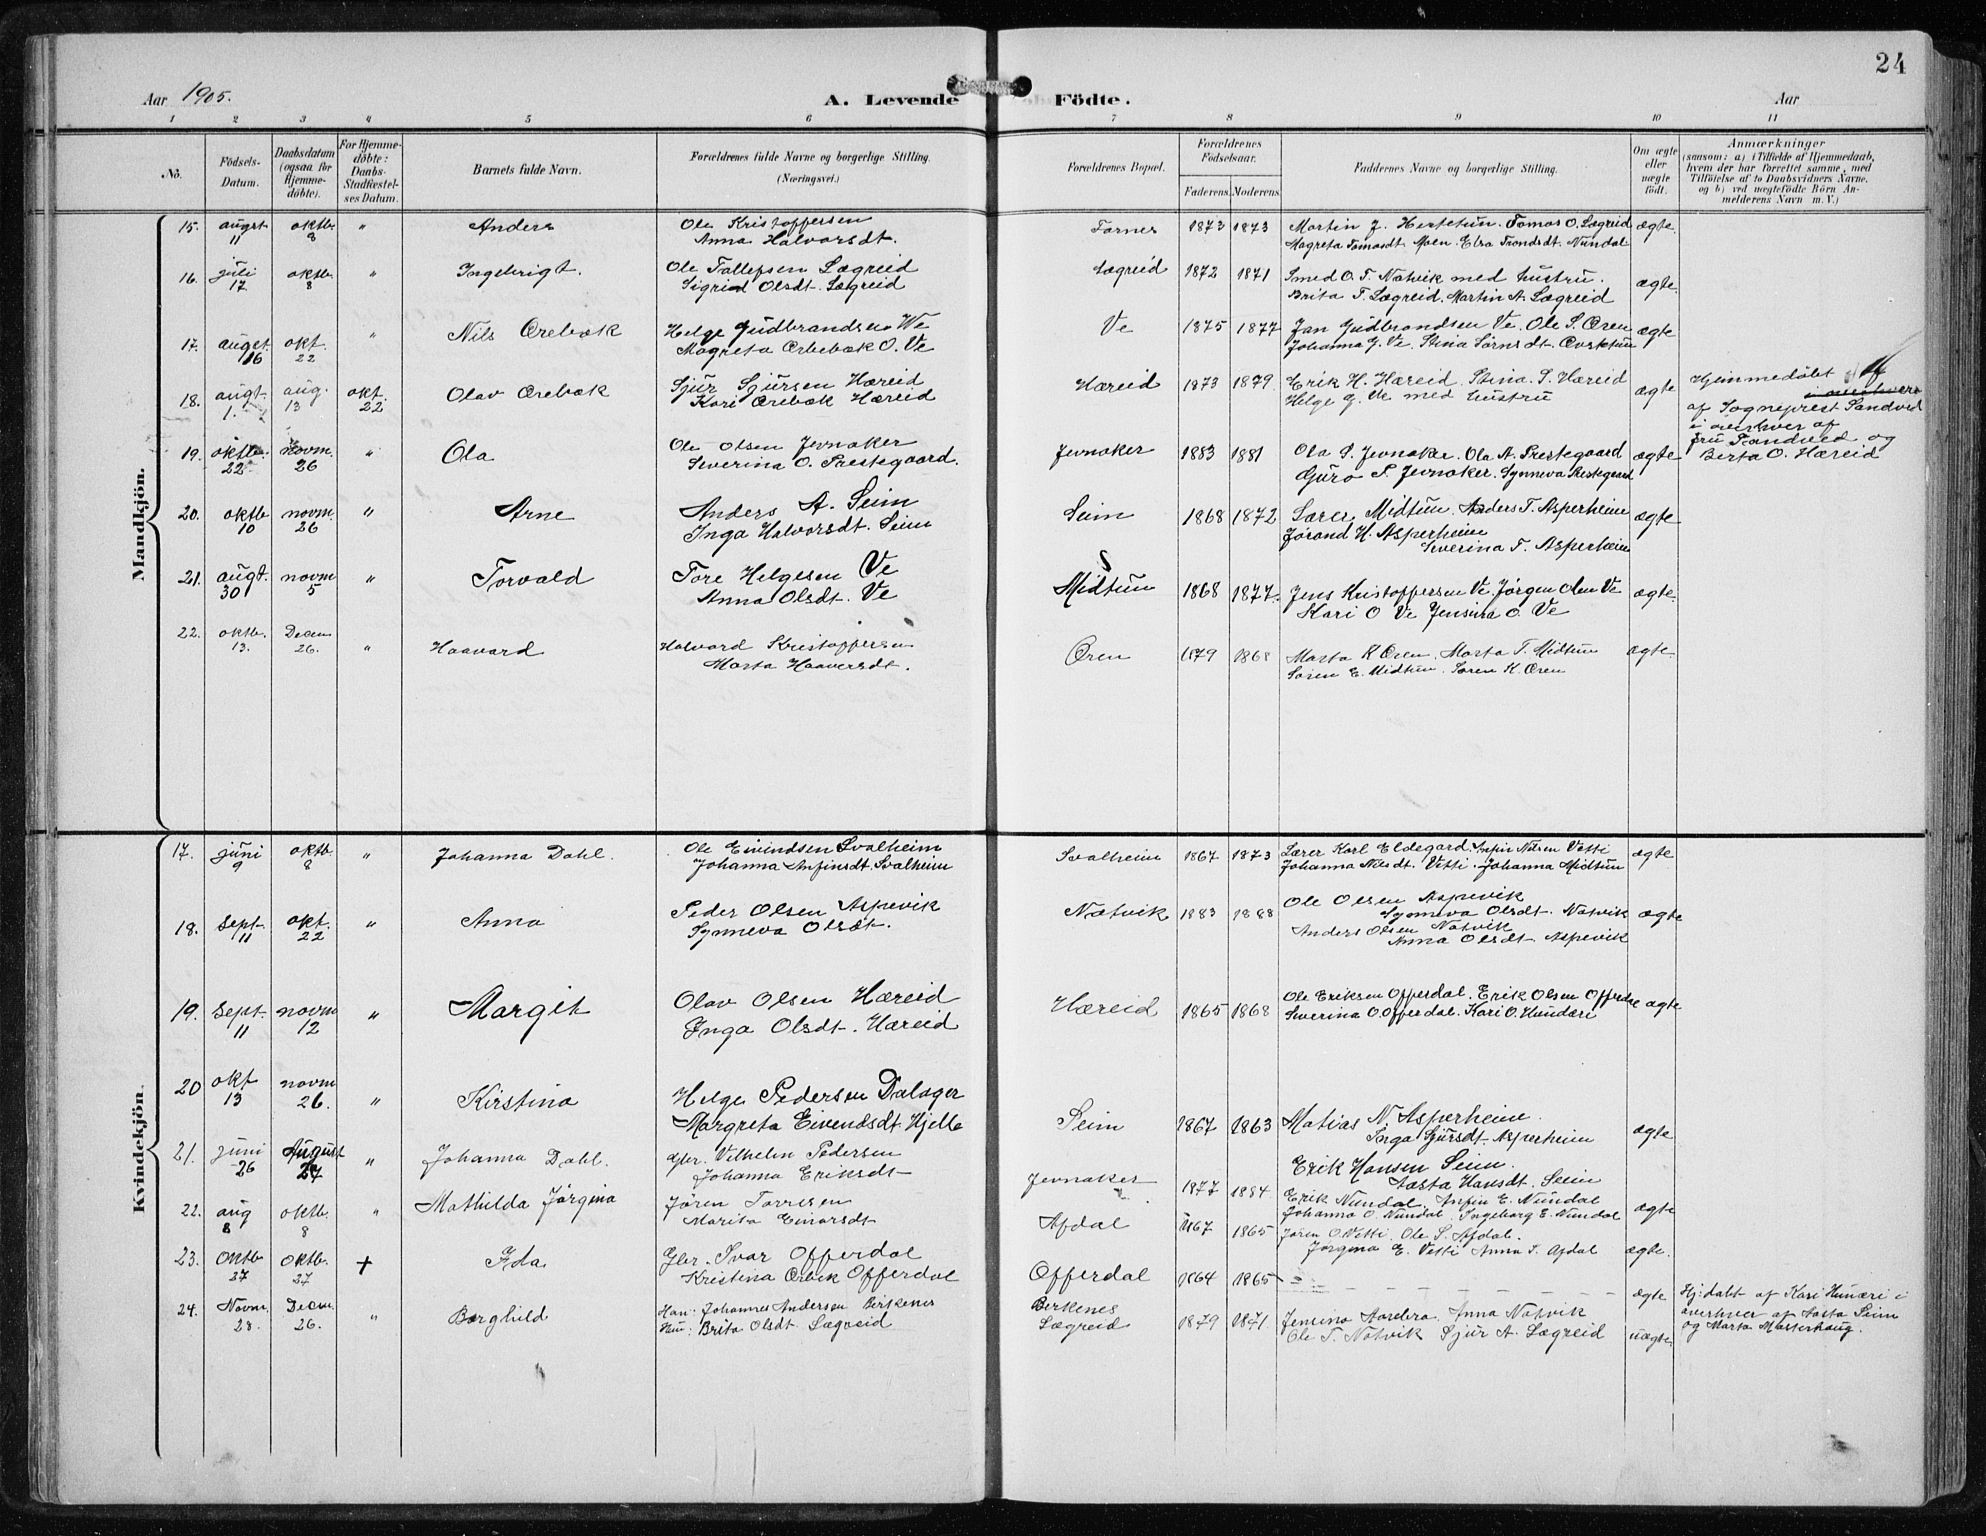 24
Aar 1905. A. Levende Födte. Aar
1 2 3 4 5 6 7 8 9 10 11
No. Födsels-Datum. Daabsdatum (ogsaa for Hjemmedöbte). For Hjemmedöbte: Daabs-Stadfæstelses Datum. Barnets fulde Navn. Forældrenes fulde Navne og borgerlige Stilling. (Næringsvei.) Forældrenes Bopæl. Forældrenes Födselsaar. Faderens. Moderens. Faddernes Navne og borgerlige Stilling. Om ægte eller uægte födt. Anmærkninger (saasom: a) i Tilfælde af Hjemmedaab, hvem der har forrettet samme, med Tilföielse af to Daabsvidners Navne, og b) ved uægtefödte Börn Anmelderens Navn m. V.)
Mandkjön.
15. augst 11 oktb. 8 " Anders Ole Kristoffersen Farnes 1873 1873 Martin J. Hertetun. Tomas O. Lægreid ægte.
Anna Halvorsdt. Magreta Tomasdt Moen. Elsa Trondsdt. Nundal
16. juli 17 oktb. 8 " Ingebrigt. Ole Tollefsen Lægreid Lægreid 1872 1871 Smed O. T. Natvik med hustru. ægte.
Sigrid Olsdt. Lægreid Brita T. Lægreid. Martin A. Lægreid
17. augst. 16 okt. 22 " Nils Ørebæk Helge Gudbrandsen We Ve 1875 1877 Jan Gudbrandsen Ve. Ole S. Øren ægte
Magreta Ørbebæk O. Ve Johanna G. Ve. Stina Sørnsdt.
18. augt. 1. aug. 13 okt. 22 Olav Ørebæk Sjur Sjursen Hæreid Hæreid 1873 1879 Erik H. Hæreid. Stina. S. Hæreid ægte Hjemmedøbt
Kari Ørebæk Hæreid Helge G. Ve med hustru af Sogneprest Sandved
i overhver af
fru Sandved og
Berta O. Hæreid
19. oktb. 22 Novm. 26 " Ola Ole Olsen Jevnaker Jevnaker 1883 1881 Ola S. Jevnaker. Ola A. Prestegaard ægte
Severina O. Prestegaard. Guro P. Jevnaker. Synneva Prestegaard
20. oktb 10 novm. 26 " Arne Anders A. Seim Seim 1868 1872 Lærer Midtun. Anders T. Asperheim ægte
Inga Halvorsdt. Seim Jørand H. Asperheim
Severina T. Asperheim
21. augt. 30 novm 5 " Torvald Tore Helgesen Ve Midtun 1868 1877. Jens Kristoffersen Ve. Jørgen Olen Ve ægte.
Anna Olsdt. Ve Kari O Ve Jensina O. Ve
22. oktb. 13. Decem 26. " Haavard Halvard Kristoffersen Øren 1879 1868 Marta K Øren. Marta T. Midtun ægte.
Marta Haaversdt. Søren E. Midtun. Søren K. Øren
Kvindekjön.
17. juni 9 oktb. 8 " Johanna Dahl. Ole Eivindsen Svalheim Svalheim 1867 1873 Lærer Karl Eldegard. Anfin Nilsen Vetti ægte
Johanna Anfinsdt. Svalheim Johanna Nilsdt. Vetti. Johanna Midtun
18. Sept. 11 okt. 22 " Anna Peder Olsen Aspevik Natvik 1883 1888 Ole Olsen Aspevik ægte
Synneva Olsdt. Synneva Olsdt. Natvik
Anders Olsen Natvik
Anna Olsdt. Aspevik
19. Sept. 11 novm 12 " Margit Olav Olsen Hæreid Hæreid 1865 1868 Ole Eriksen Offerdal. Erik Olsen Offerdal ægte
Inga Olsdt. Hæreid Severina O. Offerdal. Kari O. Hunæri
20 okt 13 novm 26. " Kirstina Helge Pedersen Dalager Seim 1867 1863 Matias N. Asperheim. ægte
Margreta Eivendsdt Hjelle Inga Sjursdt. Asperheim
Erik Hansen Seim.
Aasta Hansdt. Seim
21. juni 26 August 27 " Johanna Dahl. Gbr. Vilhelm Pedersen Jevnaker 1877 1884 Erik Nundal. Anfin E. Nundal ægte
Johanna Eriksdt Johanna O. Nundal. Ingeborg E. Nundal
22. aug 8 oktb. 8 " Mathilda Jørgina Jøren Torresen Afdal 1867 1865 Jøren O. Vetti. Ole S. Afdal. ægte.
Marita Einarsdt Jørgina E. Vetti Anna T. Afdal
23. Oktb 27 oktb. 27 + Ida Gbr. Ivar Offerdal Offerdal 1864 1865 ægte Hj: døbt af Kari Hunæri i
Kristina Ørbek Offerdal overhver af Aasta Seim
og Marta Marterhaug.
24. Novm. 28. Decm. 26. " Borghild Han: Johannes Andersen Birkenes Berkenes 1879 1871 Jensina Aarebro. Anna Natvik uægte.
Hun: Brita Olsdt Lægreid Lægreid Ole T. Natvik Sjur A. Lægreid